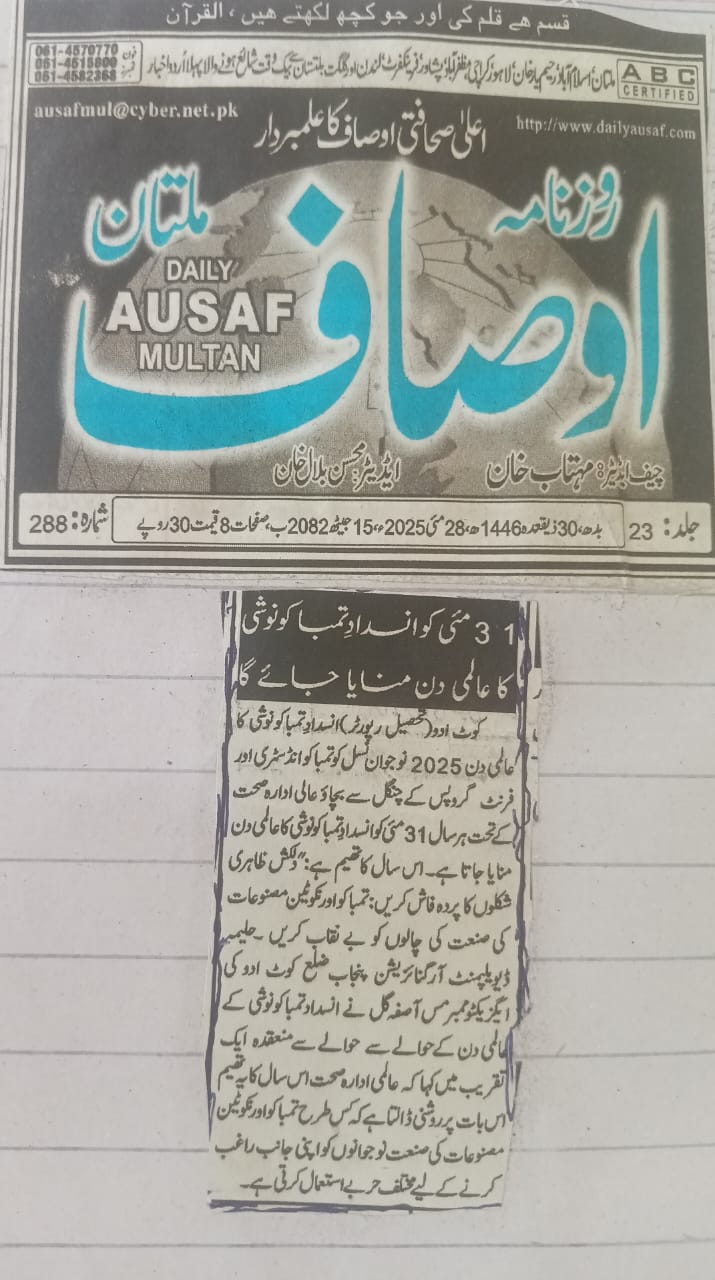 قسم ھے قلم کی اور جو کچھ لکھتے ھیں ، القرآن
ABC CERTIFIED
ملتان، اسلام آباد، رحیم یار خان، لاہور، کراچی، مظفر آباد، پشاور، فرینکفرٹ، لندن اور گلگت بلتستان سے بیک وقت شائع ہونے والا پہلا اُردو اخبار
فون نمبرز 061-4570770
061-4515800
061-4582368
ausafmul@cyber.net.pk
http://www.dailyausaf.com
اعلیٰ صحافتی اوصاف کا علمبردار
روزنامہ
اوصاف
ملتان
DAILY
AUSAF
MULTAN
چیف ایڈیٹر: مہتاب خان
ایڈیٹر: محسن بلال خان
جلد: 23
بدھ، 30 ذیقعدہ 1446ھ، 28 مئی 2025ء، 15 جیٹھ 2082ب، صفحات 8 قیمت 30 روپے
شمارہ: 288
31 مئی کو انسدادِ تمباکو نوشی
کا عالمی دن منایا جائے گا
کوٹ ادو (تحصیل رپورٹر) انسداد تمباکو نوشی کا
عالمی دن 2025 نوجوان نسل کو تمباکو انڈسٹری اور
فرنٹ گروپس کے چنگل سے بچاؤ عالی ادارہ صحت
کے تحت ہر سال 31 مئی کو انسداد تمباکو نوشی کا عالمی دن
منایا جاتا ہے۔ اس سال کا تھیم ہے: "دلکش ظاہری
شکلوں کا پردہ فاش کریں: تمباکو اور نکوٹین مصنوعات
کی صنعت کی چالوں کو بے نقاب کریں ۔ حلیمہ
ڈیویلپمنٹ آرگنائزیشن پنجاب ضلع کوٹ ادو کی
ایگزیکٹو ممبر مس آصفہ گل نے انسداد تمباکو نوشی کے
عالمی دن کے حوالے سے حوالے سے منعقدہ ایک
تقریب میں کہا کہ عالمی ادارہ صحت اس سال کا یہ تھیم
اس بات پر روشنی ڈالتا ہے کہ کس طرح تمباکو اور نکوٹین
مصنوعات کی صنعت نوجوانوں کو اپنی جانب راغب
کرنے کے لیے مختلف حربے استعمال کرتی ہے۔